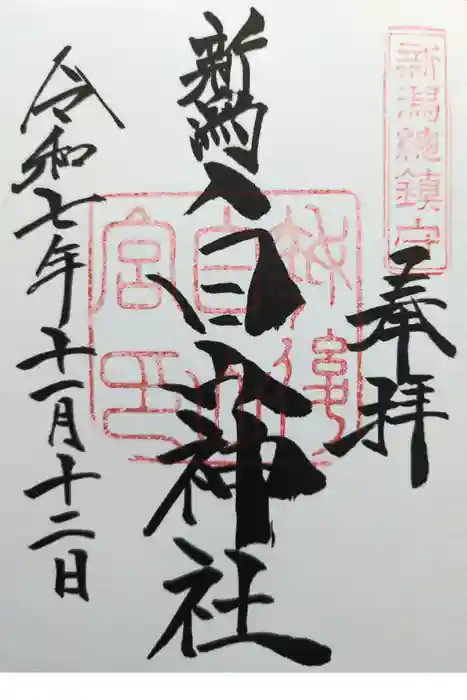 新潟總鎮守
奉拝
新潟白山神社
越後白山宮印
令和七年十一月十二日